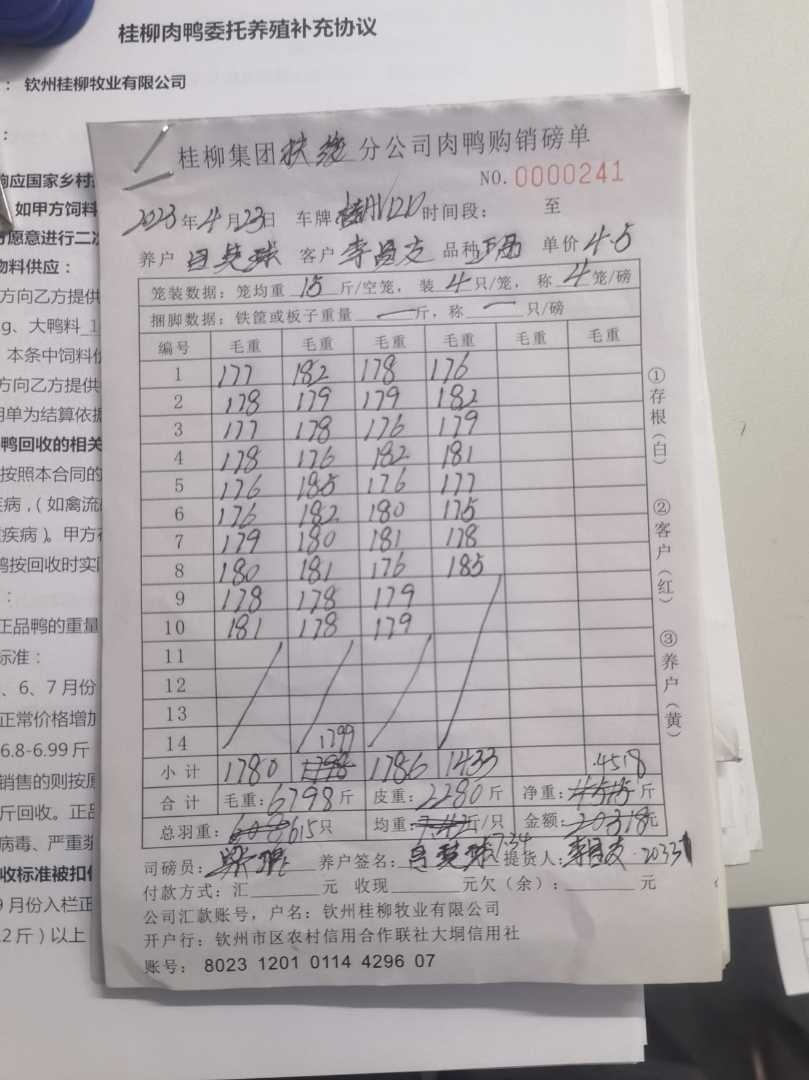 桂柳肉鸭委托养殖补充协议
： 钦州桂柳牧业有限公司
：
响应国家乡村
如甲方饲料
方愿意进行二次
物料供应：
方向乙方提供
g、大鸭料
本条中饲料价
方向乙方提供
用单为结算依据
鸭回收的相关
按照本合同的
疾病，（如禽流
疾病）。甲方有
鸭按回收时实际
：
正品鸭的重量
标准：
、6、7月份
正常价格增加
6.8-6.99斤
销售的则按原
斤回收。正品
病毒、严重
收标准被扣
9月份入栏正
.2斤）以上
桂柳集团扶绥分公司肉鸭购销磅单
NO. 0000241
2023年4月23日 车牌 时间段： 至
养户 吕楚球 客户 李昌友 品种 单价4.5
笼装数据：笼均重 15 斤/空笼，装 4 只/笼，称 4 笼/磅
捆脚数据：铁筐或板子重量 一 斤，称 一 只/磅
编号 毛重 毛重 毛重 毛重 毛重 毛重
1 177 182 178 176
2 178 179 179 182
3 177 178 176 179
4 178 176 182 181
5 176 185 176 177
6 176 182 180 175
7 179 180 181 178
8 180 181 176 185
9 178 178 179
10 181 178 179
11
12
13
14 1799
小计 1780 1798 1786 1433 4518
合计 毛重：6798斤 皮重：2280斤 净重：4515斤
总羽重：608 615只 均重：7.42斤/只 金额：20318元
7.34
司磅员： 养户签名：吕楚球 提货人：李昌友 20331
付款方式：汇 元 收现 元欠（余）： 元
公司汇款账号，户名：钦州桂柳牧业有限公司
开户行：钦州市区农村信用合作联社大垌信用社
账号： 8023 1201 0114 4296 07
①存根（白）
②客户（红）
③养户（黄）